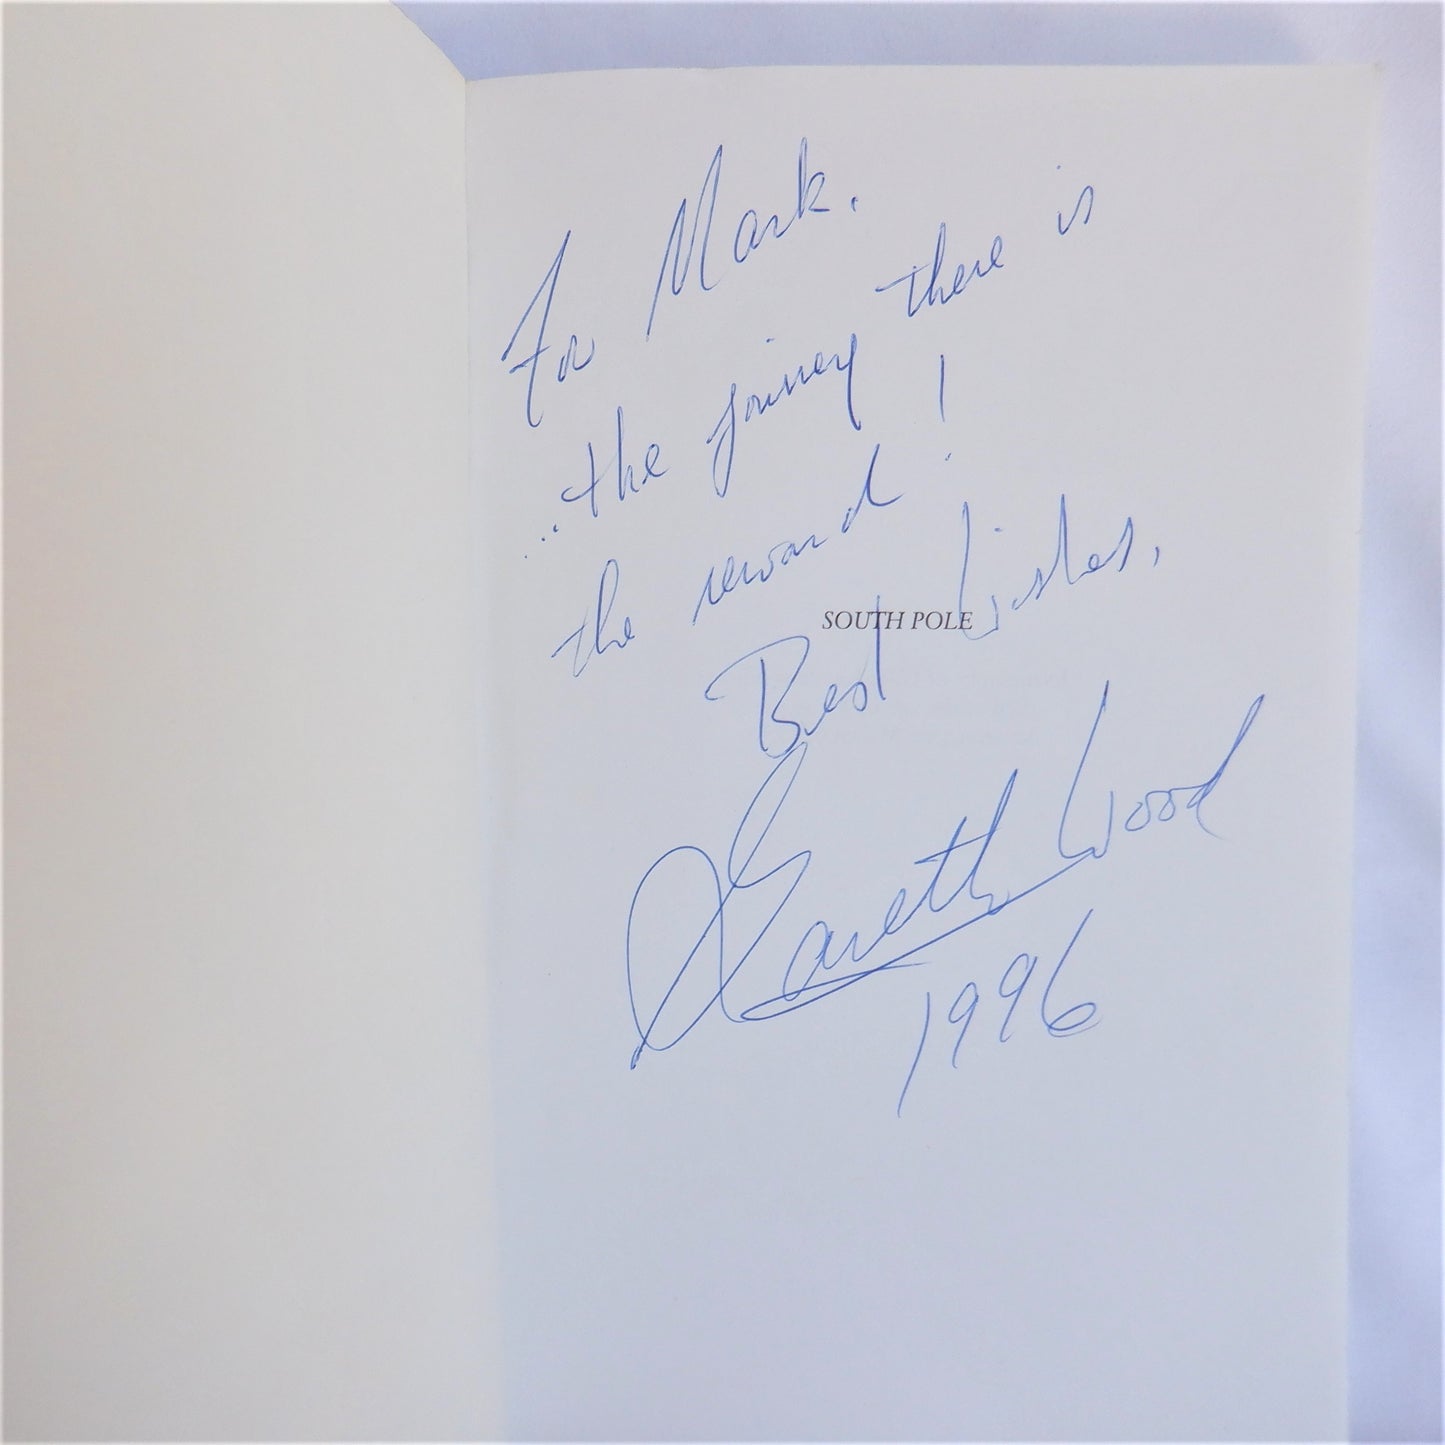 For Mark.
...the journey there is
the reward!
SOUTH POLE
Best Wishes,
Gareth Wood
1996